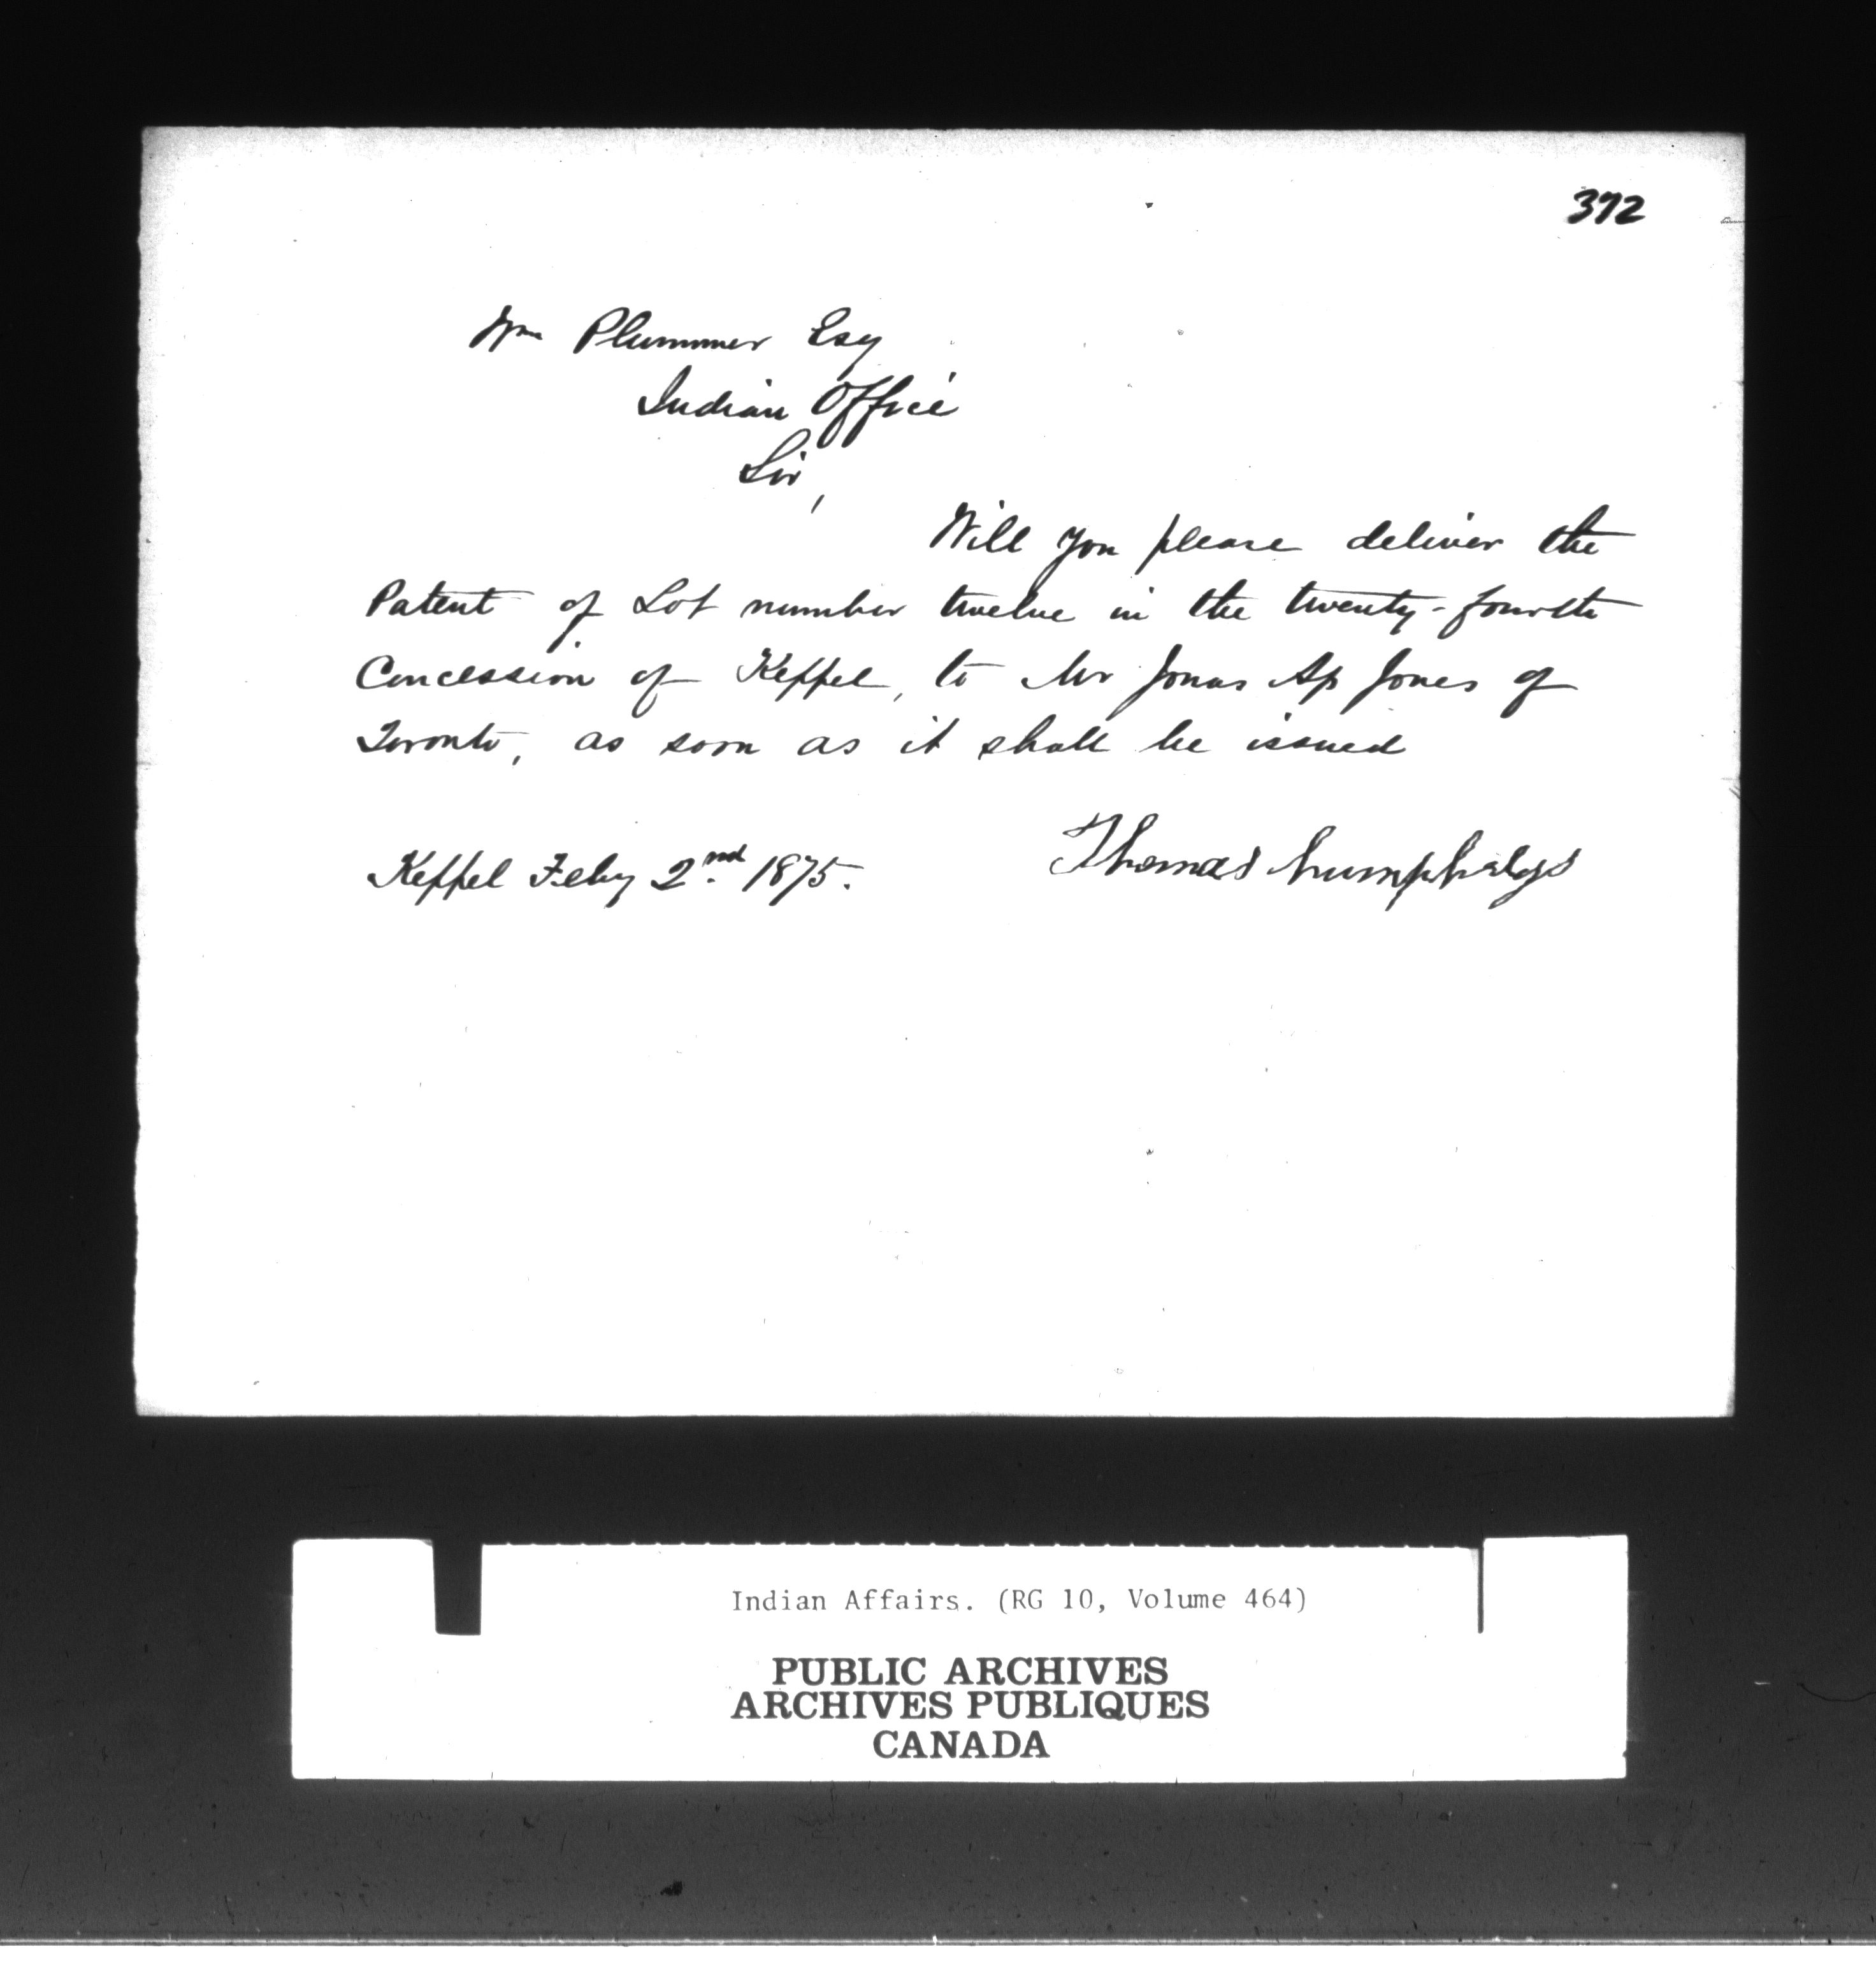 372
Wm Plummer Esq
Indian Office
Sir,
Will you please deliver the
Patent of Lot number twelve in the twenty-fourth
Concession of Keppel, to Mr Jonas Ap Jones of
Toronto, as soon as it shall be issued
Keppel Feby 2nd 1875. Thomas humphreys
Indian Affairs. (RG 10, Volume 464)
PUBLIC ARCHIVES
ARCHIVES PUBLIQUES
CANADA